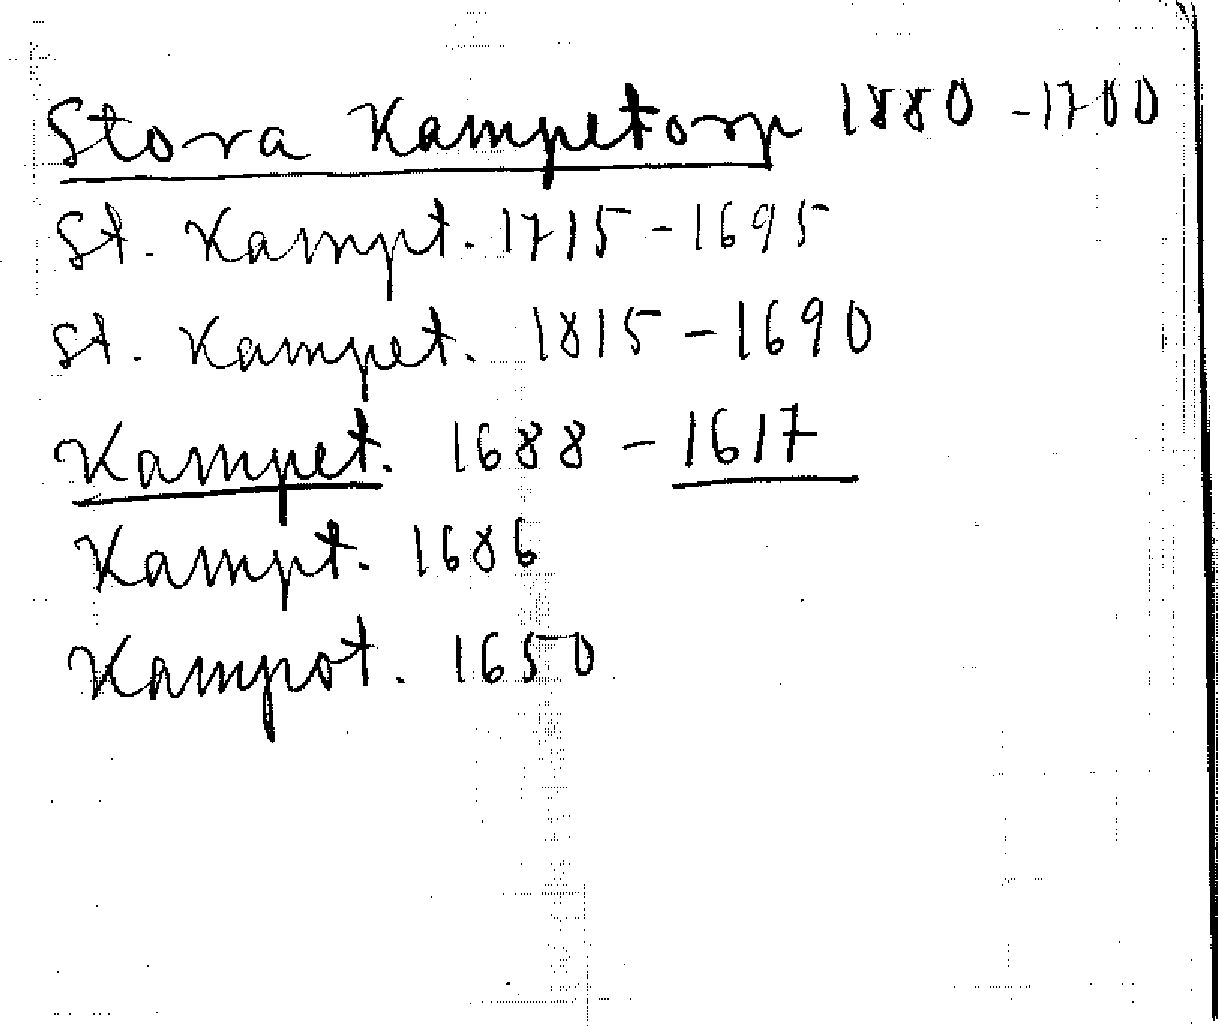 Stora Kampetorp 1880 - 1700
St. Kampt. 1715 - 1695
St. Kampet. 1815 - 1690
Kampet. 1688 - 1617
Kampt. 1686
Kampot. 1650